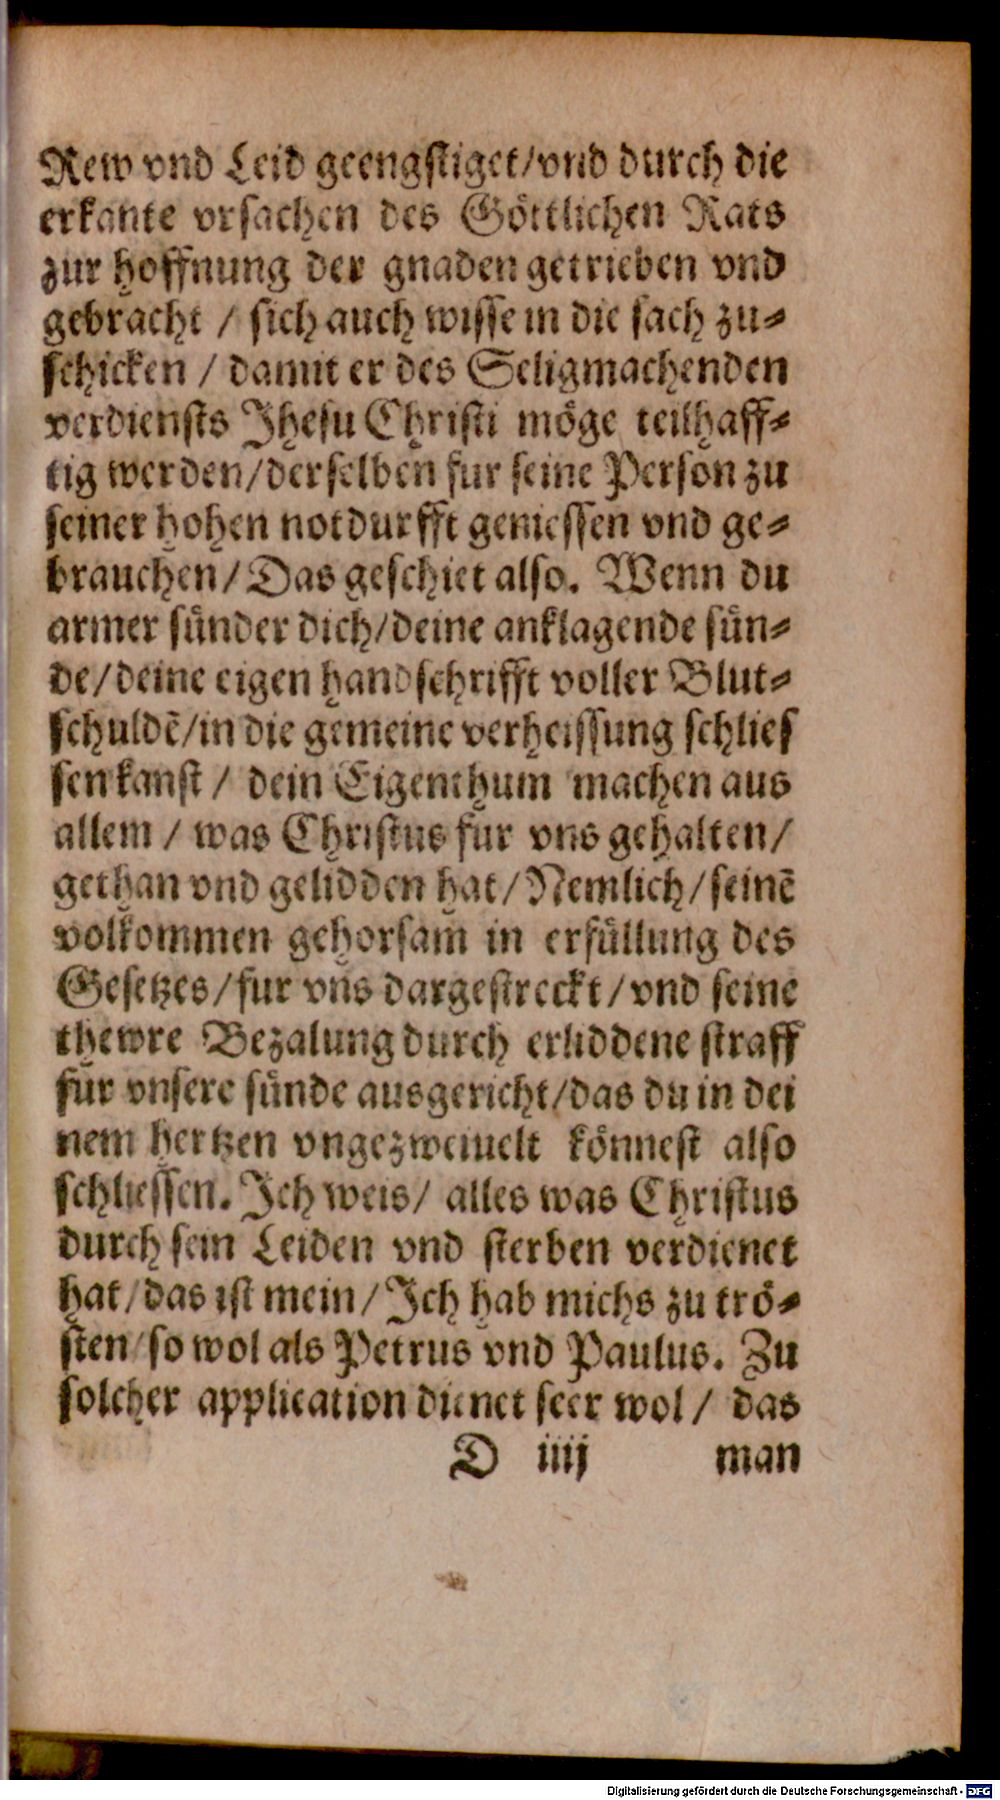 Rew vnd Leid geengstiget/vnd durch die
erkante vrsachen des Göttlichen Rats
zur hoffnung der gnaden getrieben vnd
gebracht / sich auch wisse in die sach zu-
schicken / damit er des Seligmachenden
verdiensts Jhesu Christi möge teilhaff-
tig werden/derselben fur seine Person zu
seiner hohen notdurfft geniessen vnd ge-
brauchen/Das geschiet also. Wenn du
armer sünder dich/deine anklagende sün-
de/deine eigen handschrifft voller Blut-
schuldē/in die gemeine verheissung schlies
sen kanst / dein Eigenthum machen aus
allem / was Christus fur vns gehalten/
gethan vnd gelidden hat/Nemlich/seinē
volkommen gehorsam in erfüllung des
Gesetzes/fur vns dargestreckt/vnd seine
thewre Bezalung durch erliddene straff
fur vnsere sünde ausgericht/das du in dei
nem hertzen vngezweiuelt könnest also
schliessen. Jch weis/ alles was Christus
durch sein Leiden vnd sterben verdienet
hat/das ist mein/Jch hab michs zu trö-
sten/so wol als Petrus vnd Paulus. Zu
solcher application dienet seer wol/ das
D iiij man
Digitalisierung gefördert durch die Deutsche Forschungsgemeinschaft - DFG